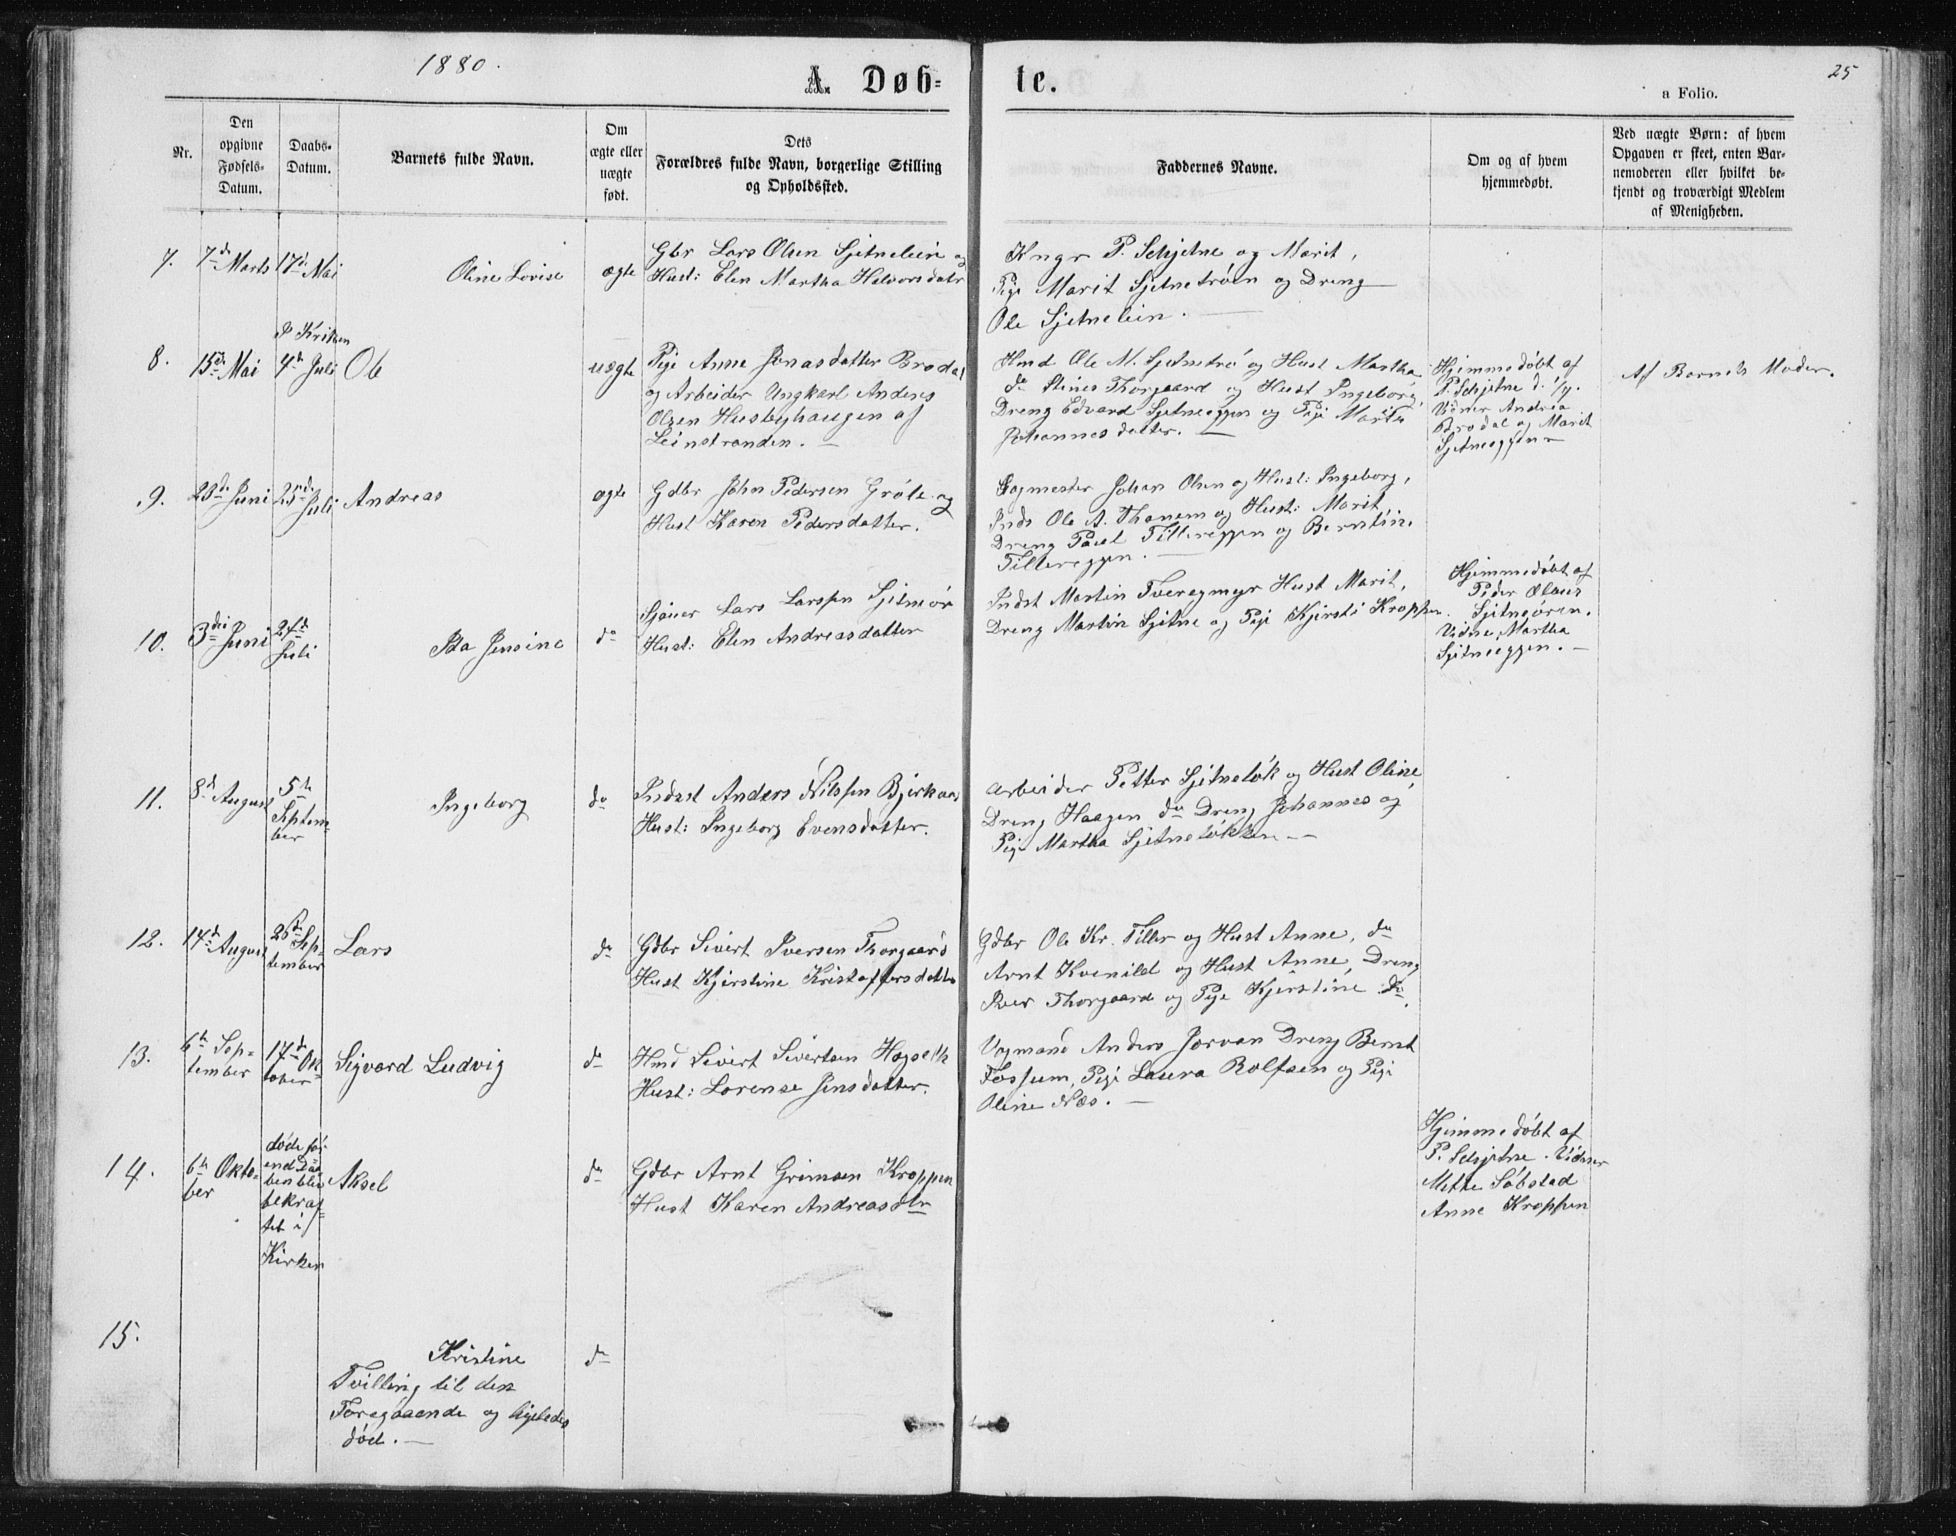 1880.
25
A. Døb-
te.
a Folio.
Nr.
Den
opgivne
Fødsels-
Datum.
Daabs-
Datum.
Barnets fulde Navn.
Om
ægte eller
uægte
født.
Dets
Forældres fulde Navn, borgerlige Stilling
og Opholdssted.
Faddernes Navne.
Om og af hvem
hjemmedøbt.
Ved uægte Børn: af hvem
Opgaven er skeet, enten Bar-
nemoderen eller hvilket be-
kjendt og troværdigt Medlem
af Menigheden.
7.
7de Marts
17de Mai
Oline Lovise
ægte
Gbr Lars Olsen Sjetnelein og
Hust: Elen Martha Halvorsdatr
Kngr P. Schjetne og Marit,
Pige Marit Sjetnetrøen og Dreng
Ole Sjetnelein.
8.
15de Mai
I Kirken
4de Juli
Ole
uægte
Pige Anne Jonasdatter Brodal
og Arbeider Ungkarl Anders
Olsen Husbyhaugen af
Leinstranden. —
Hmd Ole N. Sjetnetrø og Hust Martha
do Stines Thorgaard og Hust Ingeborg,
Dreng Edvard Sjetneeggen og Pige Marta
Johannesdatter. —
Hjemmedøbt af
P. Schjetne d.
Vidner Andrea
Brodal og Marit
Sjetneeggen —
Af Barnets Moder.
9.
23de Juni
25de Juli
Andreas
ægte
Gdbr John Pedersen Grøte og
Hust Karen Pedersdatter.
Johan Olsen og Hust: Ingeborg,
Inds Ole A. Thanem og Hust: Marit,
Dreng Paul Tillereggen og Berntine
Tillereggen. —
10.
3die Juni
Juli
Ida Jensine
do
Lars Larsen Sjetneør
Hust: Elen Andreasdatter
Indst Martin Tveregmyr Hust Marit,
Dreng Martin Sjetne og Pige Kjersti Kroppen.
Hjemmedøbt af
Peder Olaus
Sjetneøren.
Vidne Martha
Sjetneeggen. —
11.
8de August
5te
Septem-
ber
Ingeborg
do
Indst Anders Nilssen Bjørkaas
Hust: Ingeborg Evensdatter.
Arbeider Petter Sjetneløk og Hust Oline,
Dreng Haagen do Dreng Johannes og
Pige Martha Sjetneløkken —
12.
14de August
26de Sep-
tember
Lars
do
Gdbr Sivert Iversen Thorgaard
Hust Kjerstine Kristoffersdatter
Gdbr Ole Kr. Tiller og Hust Anne, do
Arnt Kvenild og Hust Anne, Dreng
Iver Thorgaard og Pige Kjerstine do.
13.
6te Sep-
tember
17de Ok-
tober
Sigvard Ludvig
do
Hmd Sivert Sivertsen Hogseth
Hust: Lorense Jensdatter.
Vogmand Anders Jorvan Dreng Bernt
Fossum, Pige Laura Rolfsen og Pige
Oline Næs. —
14.
6te Okto-
ber
døde før
end Daa-
ben blev
bekræf-
tet i
Kirken
Aksel
do
Gdbr Arnt Grimsen Kroppen
Hust Karen Andreasdtr
Hjemmedøbt af
P. Schjetne. Vidner
Mette Søbstad
Anne Kroppen
15.
Kristine
Tvilling til den
Foregaaende og ligeledes
død. —
do